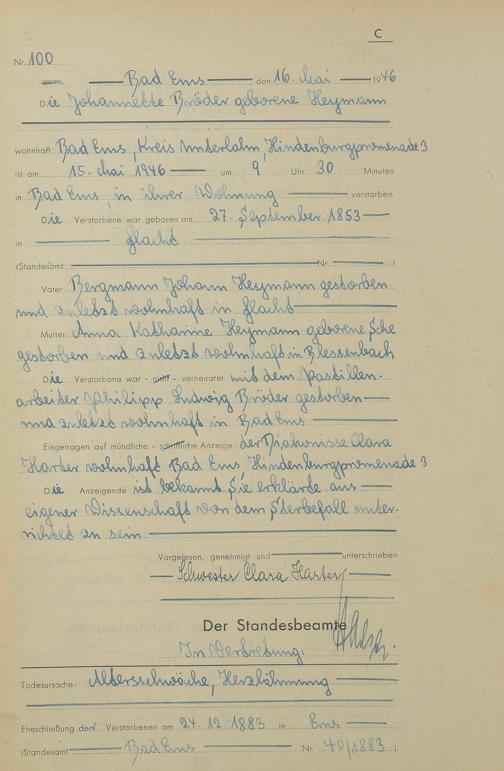 C
Nr. 100
Bad Ems, den 16. Mai 1946
Die Johannette Bröder geborene Heymann
wohnhaft Bad Ems, Kreis Unterlahn, Hindenburgpromenade 3
ist am 15. Mai 1946 um 9 Uhr 30 Minuten
in Bad Ems, in ihrer Wohnung verstorben.
Die Verstorbene war geboren am 27. September 1853
in Flacht
(Standesamt Nr. )
Vater: Bergmann Johann Heymann gestorben
und zuletzt wohnhaft in Flacht
Mutter: Anna Katharine Heymann geborene
gestorben und zuletzt wohnhaft in Blessenbach
Die Verstorbene war - nicht - verheiratet mit dem Pastillen-
arbeiter Philipp Ludwig Bröder gestorben
und zuletzt wohnhaft in Bad Ems
Eingetragen auf mündliche - schriftliche Anzeige der Diakonisse Clara
Harter wohnhaft Bad Ems Hindenburgpromenade 3
Die Anzeigende ist bekannt. Sie erklärte aus
eigener Wissenschaft von dem Sterbefall unter-
richtet zu sein.
Vorgelesen, genehmigt und unterschrieben
Schwester Clara Harter
Der Standesbeamte
In Vertretung:
Todesursache: Altersschwäche, Herzlähmung
Eheschließung der Verstorbenen am 24.12.1883 in Ems
(Standesamt Bad Ems Nr. 40/1883 ).